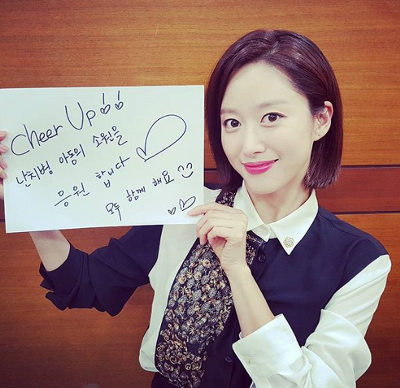 Cheer Up!!
난치병 아동의 소원을
응원 합니다
모두 함께 해요